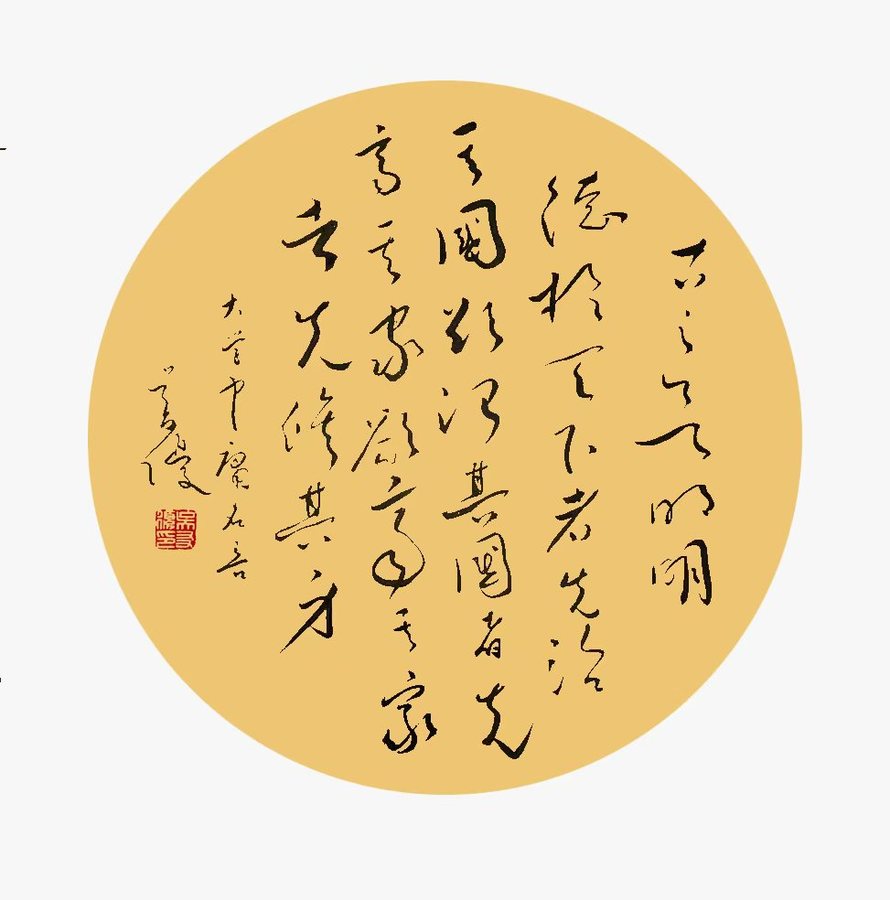 古之欲明明
德於天下者先治
其國欲治其國者先
齊其家欲齊其家
者先修其身
大学中庸名言